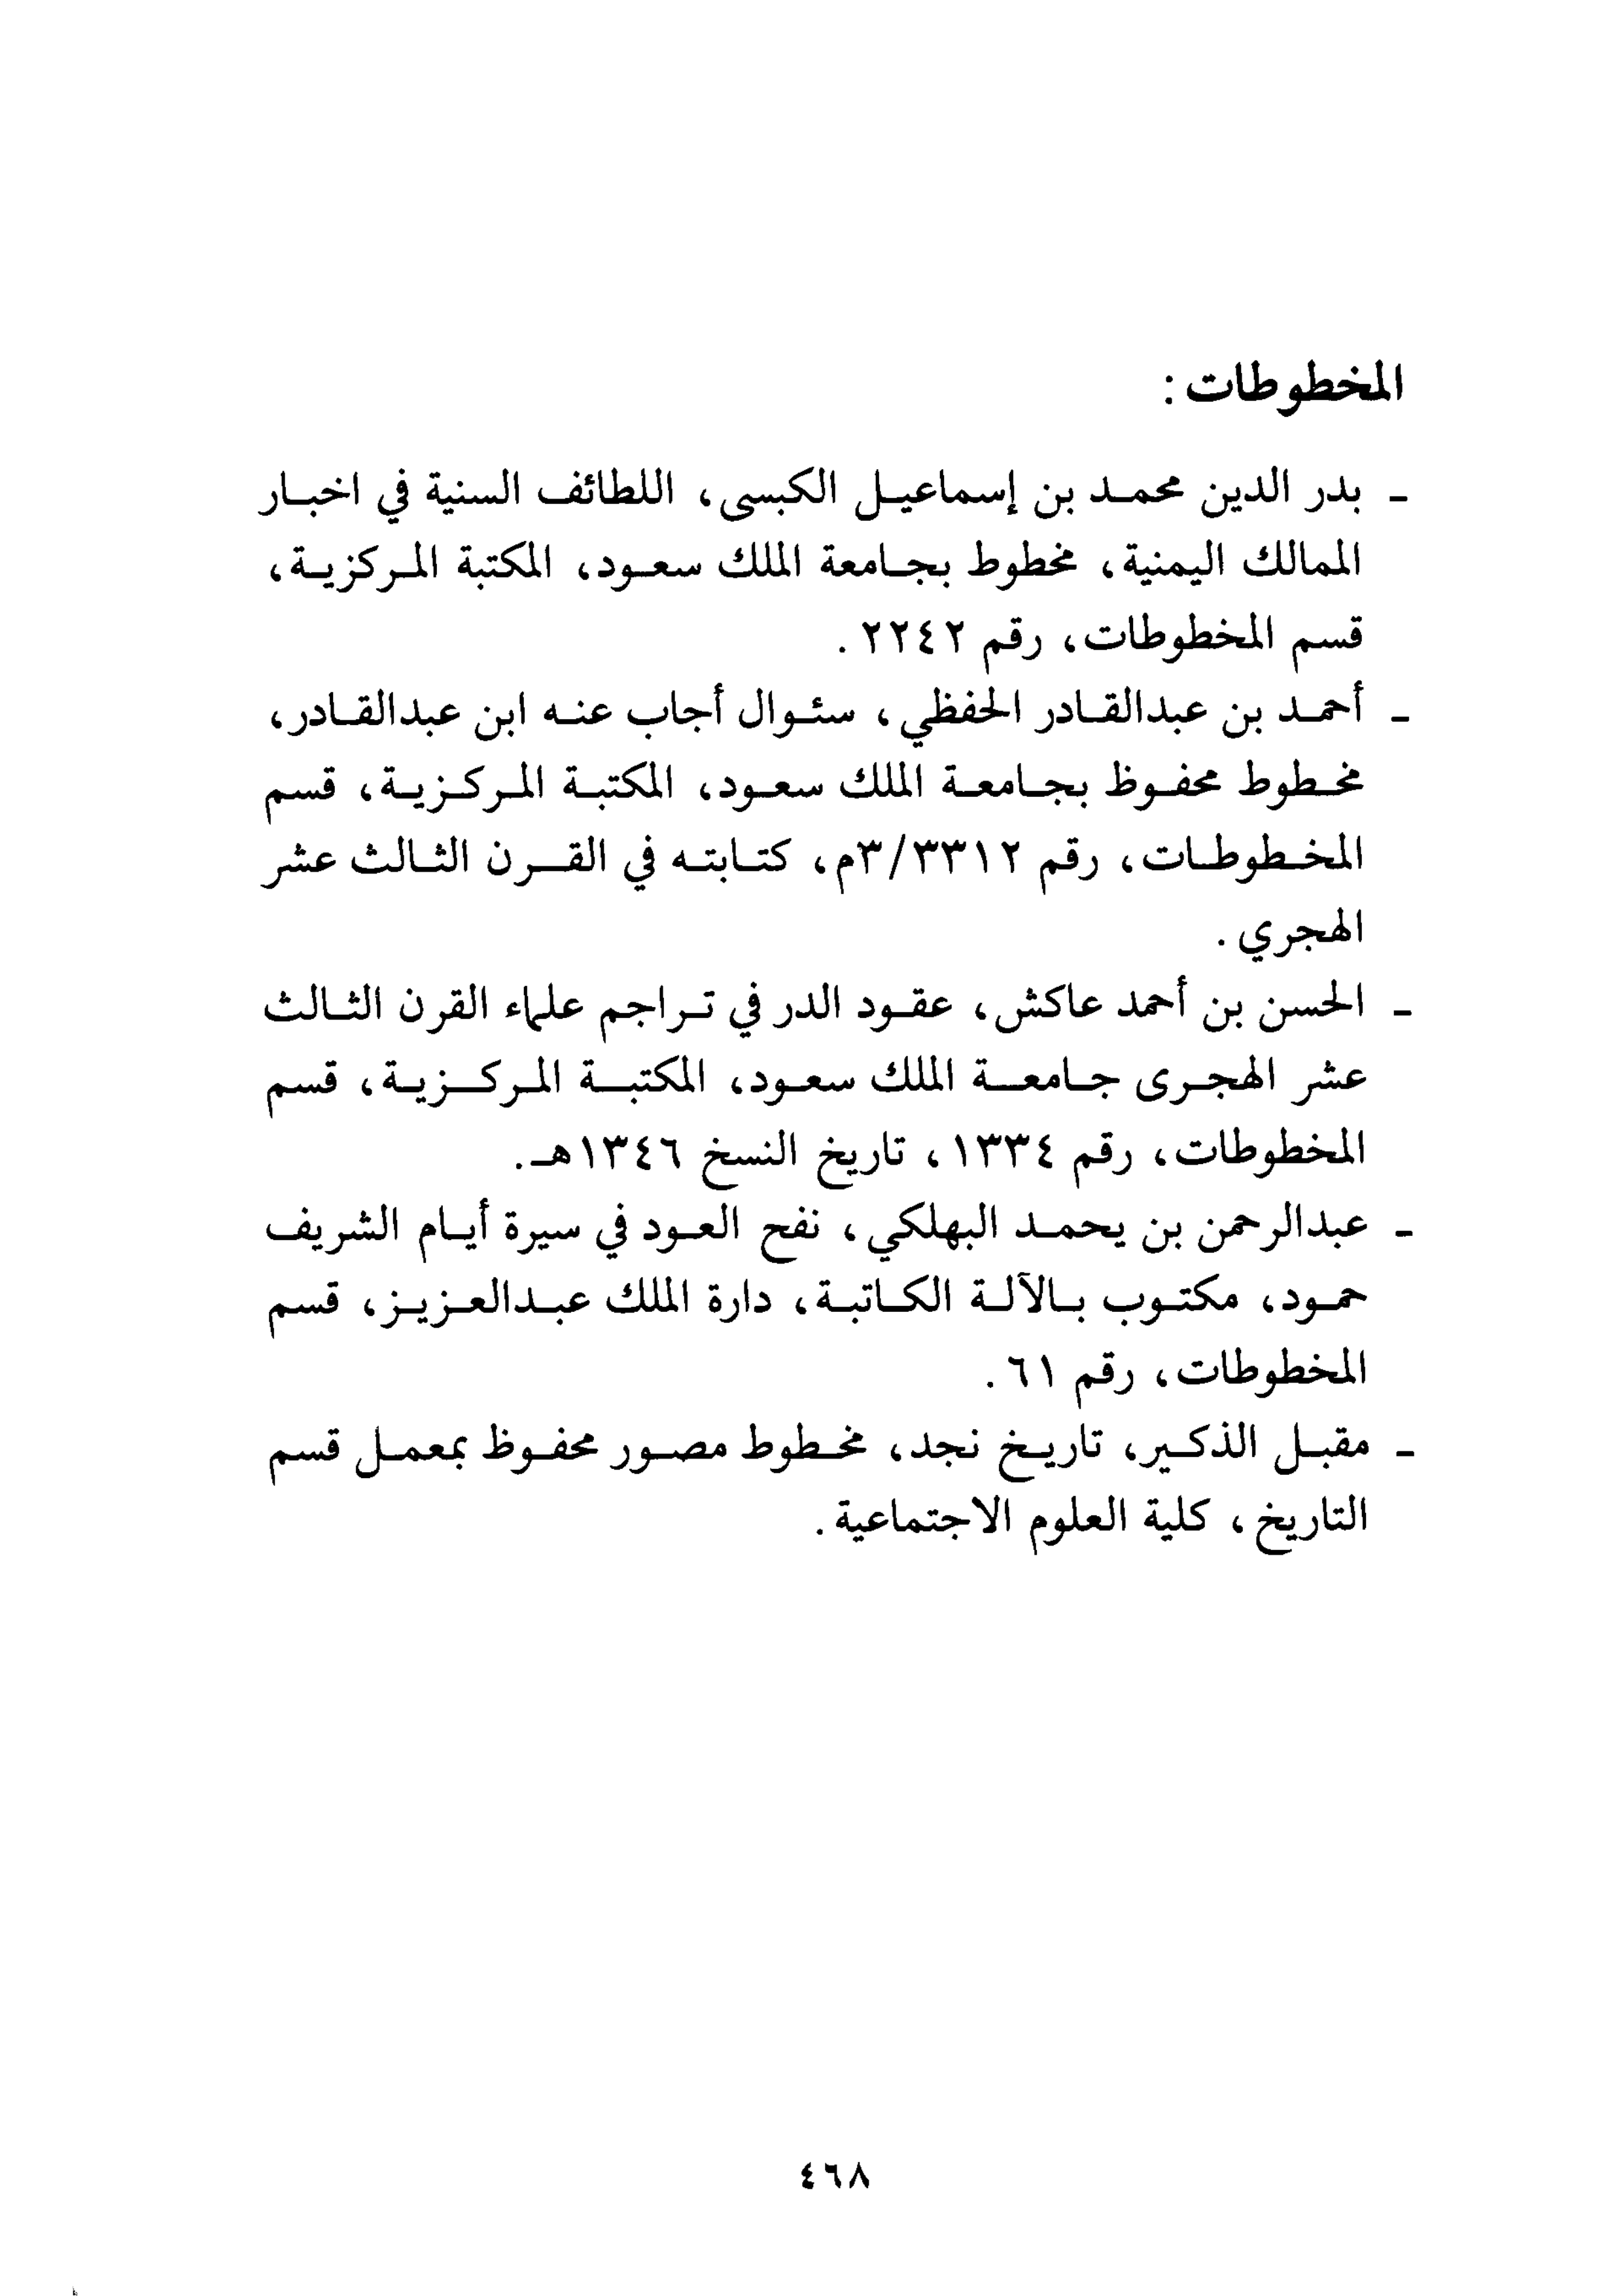 المخطوطات :
ـ بدر الدين محمد بن إسماعيل الكبسى، اللطائف السنية في اخبار
الممالك اليمنية، مخطوط بجامعة الملك سعود، المكتبة المركزية،
قسم المخطوطات، رقم ٢٢٤٢ .
ـ أحمد بن عبدالقادر الحفظي، سئوال أجاب عنه ابن عبدالقادر،
مخطوط محفوظ بجامعة الملك سعود، المكتبة المركزية، قسم
المخطوطات، رقم ٣/٣٣١٢م، كتابته في القرن الثالث عشر
الهجري .
ـ الحسن بن أحمد عاكش، عقود الدر في تراجم علماء القرن الثالث
عشر الهجرى جامعة الملك سعود، المكتبة المركزية، قسم
المخطوطات، رقم ١٣٣٤، تاريخ النسخ ١٣٤٦هـ.
ـ عبدالرحمن بن يحمد البهلكي، نفح العود في سيرة أيام الشريف
حمود، مكتوب بالآلة الكاتبة، دارة الملك عبدالعزيز، قسم
المخطوطات، رقم ٦١ .
ـ مقبل الذكير، تاريخ نجد، مخطوط مصور محفوظ بمعمل قسم
التاريخ، كلية العلوم الاجتماعية .
٤٦٨